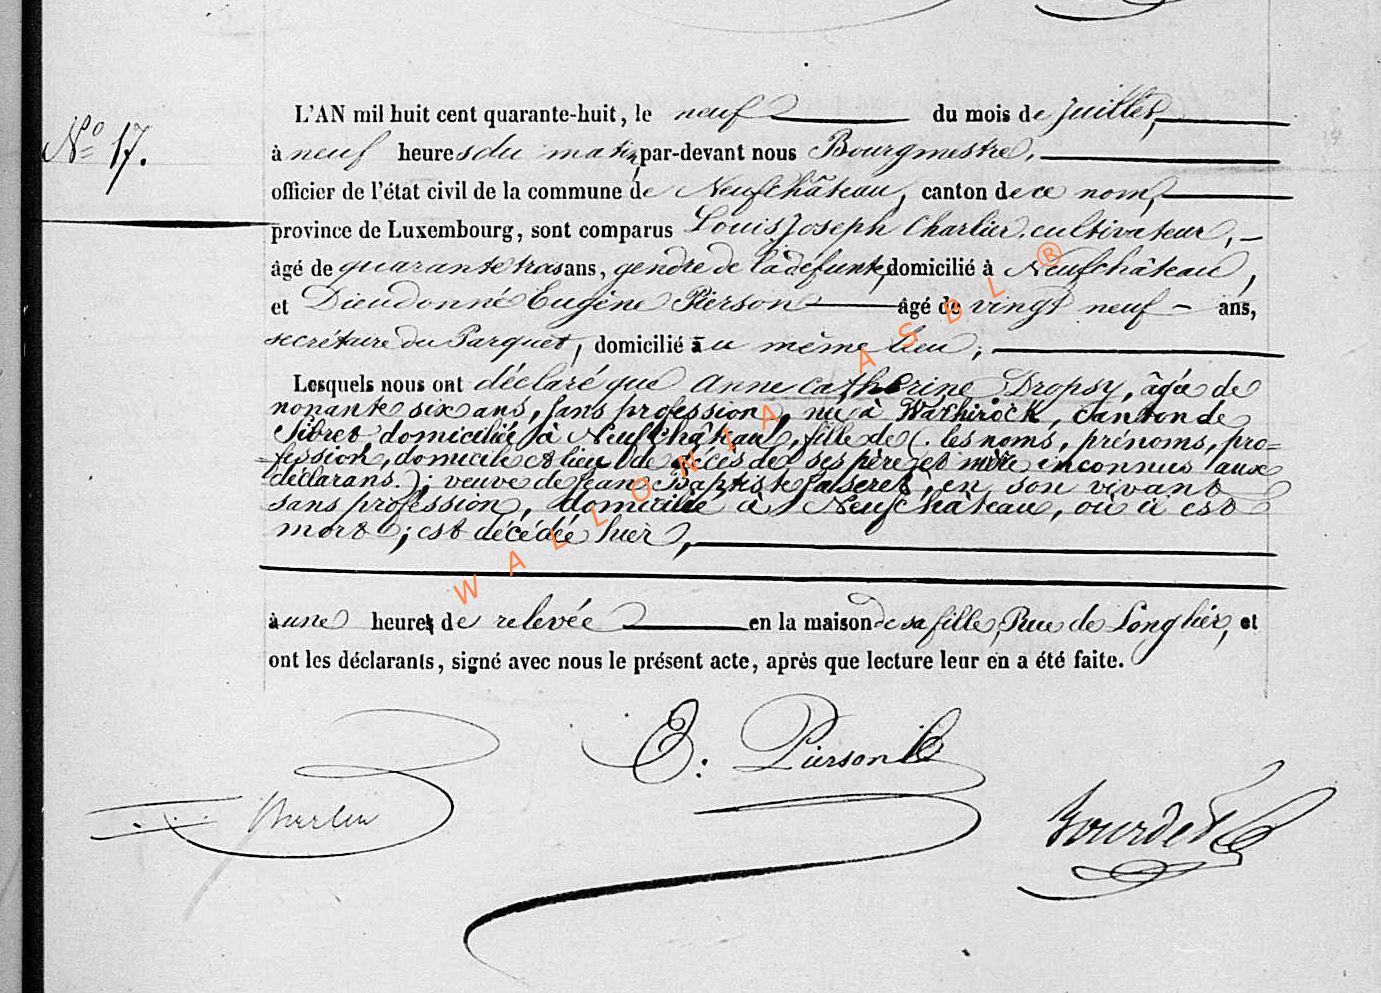 N° 17.
L'AN mil huit cent quarante-huit, le neuf du mois de juillet,
à neuf heures du matin, par-devant nous Bourgmestre,
officier de l'état civil de la commune de Neufchâteau, canton de ce nom,
province de Luxembourg, sont comparus Louis Joseph Charlier, cultivateur,
âgé de quarante trois ans, gendre de la défunte, domicilié à Neufchâteau,
et Dieudonné Eugène Pierson âgé de vingt neuf ans,
secrétaire du Parquet, domicilié au même lieu,
Lesquels nous ont déclaré que Anne Catherine Dropsy, âgée de
nonante six ans, sans profession, née à Wathirock, canton de
Sibret domiciliée à Neufchâteau, fille de (les noms, prénoms, pro=
=fession, domicile et lieu de décès de ses père et mère inconnus aux
déclarans.); veuve de Jean Baptiste Laseret, en son vivant
sans profession, domicilié à Neufchâteau, où il est
mort; est décédée hier,
à une heure de relevée en la maison de sa fille, Rue de Longlier, et
ont les déclarants, signé avec nous le présent acte, après que lecture leur en a été faite.
E. Pierson
Charlier
Bourdet
WALLONIA ASBL ®